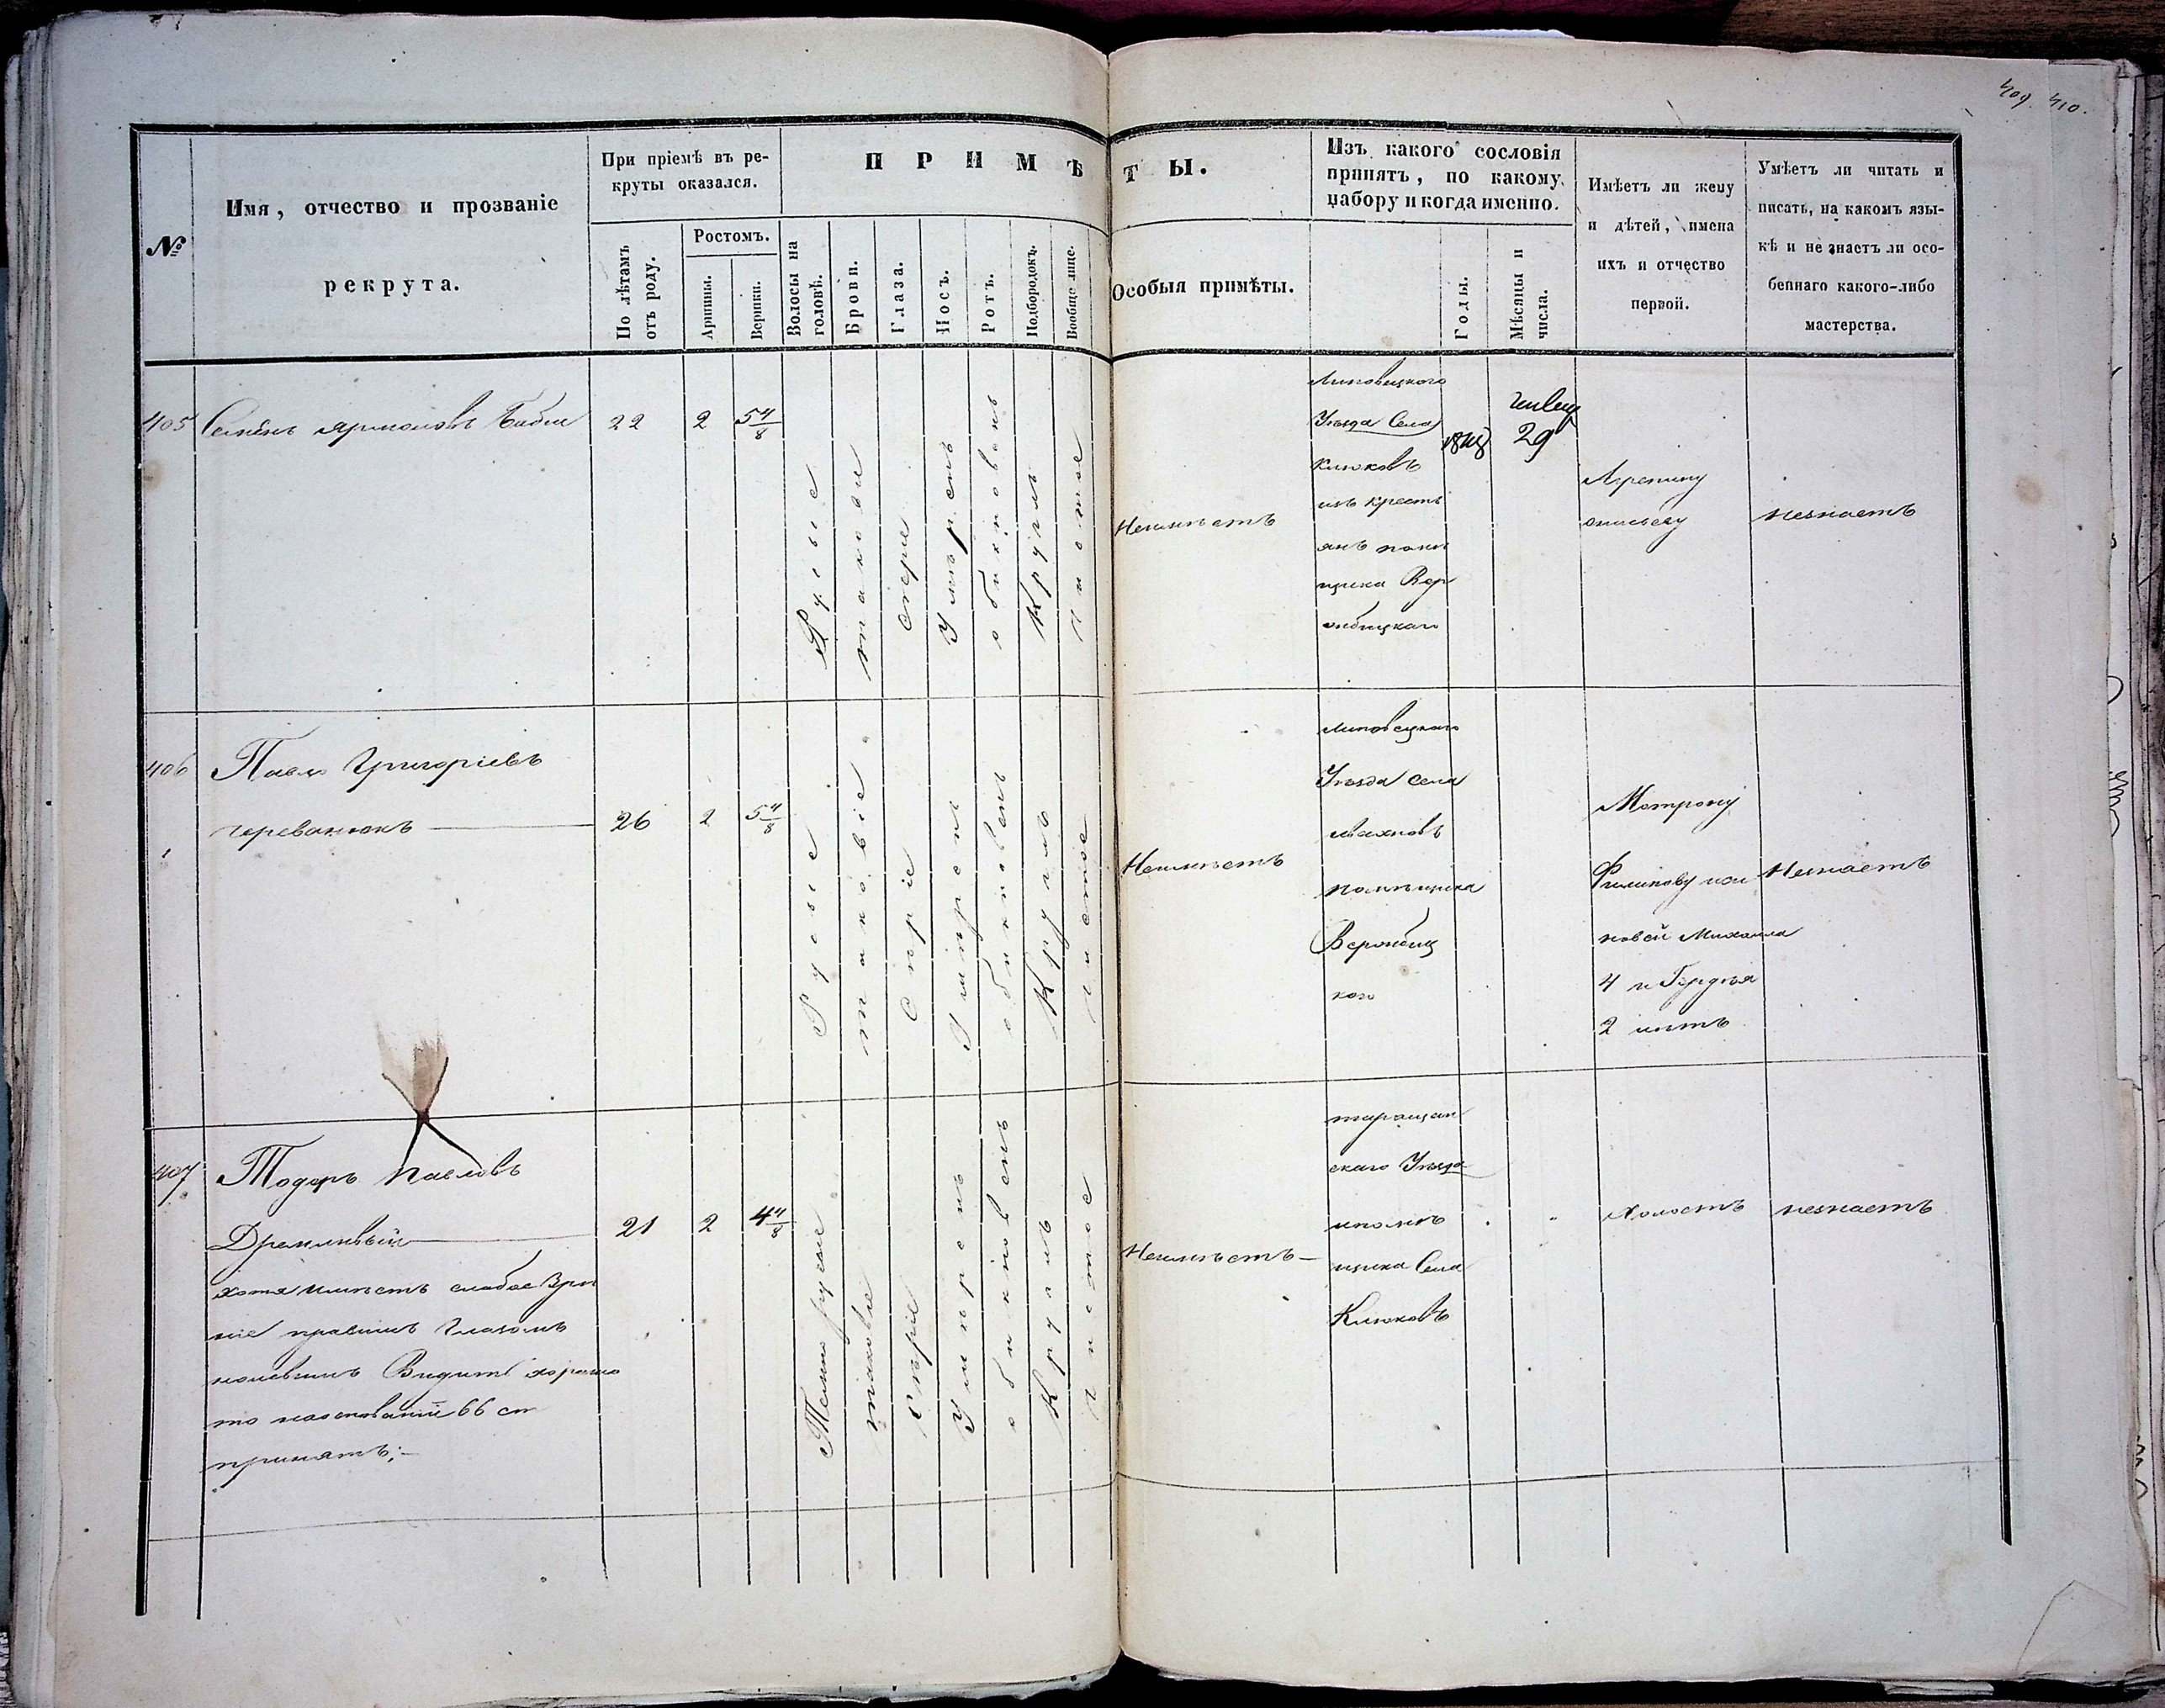 409. 410.
№
Имя, отчество и прозваніе
рекрута.
При пріемѣ въ ре-
круты оказался.
По лѣтамъ
отъ роду.
Ростомъ.
Аршины.
Вершки.
ПРИМѢТЫ.
Волосы на
головѣ.
Брови.
Глаза.
Носъ.
Ротъ.
Подбородокъ.
Вообще лице.
Особыя примѣты.
Изъ какого сословія
принятъ, по какому
набору и когда именно.
Годы.
Мѣсяцы и
числа.
Имѣетъ ли жену
и дѣтей, имена
ихъ и отчество
первой.
Умѣетъ ли читать и
писать, на какомъ язы-
кѣ и не знаетъ ли осо-
беннаго какого-либо
мастерства.
405
22
2
5 4/8
Русые
таковы
сѣрые
Умѣренъ
обикновенъ
Круглъ
чистое
Неимѣетъ
Липовецкого
Уѣзда Села
Клюковъ
изъ крестъ
янъ помѣ
щика Вер
жбицкаго
29
Агрепину
незнаетъ
406
Павло Григоріевъ
череванюкъ
26
2
5 4/8
Русые
таковіе
Сѣріе
Умѣренъ
обикновенъ
Круглъ
чистое
Неимѣетъ
липовецкаго
Уѣзда села
помѣщика
Вержбиц
каго
Матрону
Филипову исы
новей Михаила
4 и
2 лѣтъ
Незнаетъ
407
Тодоръ Павловъ
Дремливый
хотя имѣетъ слабое Зрѣ
ніе правимъ Глазомъ
нолевимъ Видитъ хорошо
то наоснованіи 66 ст
принятъ;
21
2
4 4/8
Темно русые
таковіе
Сѣріе
Умѣренъ
обикновенъ
Круглъ
чистое
Неимѣетъ
таращан
скаго Уѣзда
щика Села
Клюковъ
Холостъ
незнаетъ